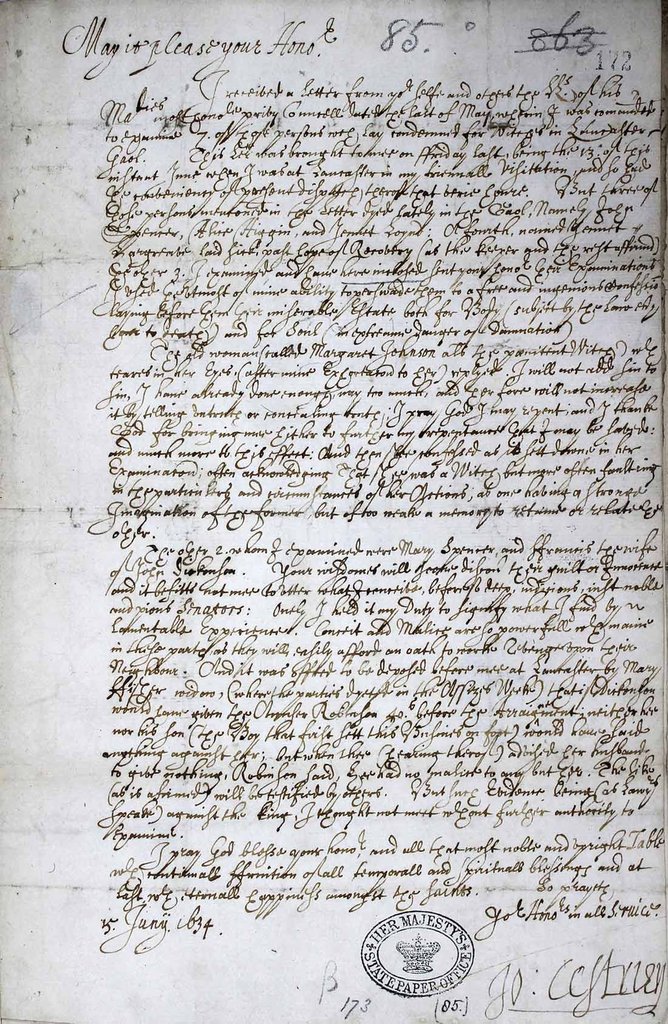 85.
863
172
May it please your Honor.
I received a Letter from yor selfe and others the LLs. of his
Maties most honoble privy Councell dated the last of May, wherin I was comanded
to examine 7. of those persons wch lay condemned for Witches in Lancaster
Gaol. This Lre was brought to mee on ffriday last, being the 13. of this
instant June when I was at Lancaster in my trienniall Visitation, and so had
the conveniency of present dispatch therof that verie houre. But three of
those persons mentioned in the Letter dyed lately in the Gaol, Namely John
Spencer, Alice Higgin, and Jennet Loynd: A fourth, named Jennet
Hargreaves laid sicke, past hope of Recovery (as the keeper and the rest affirmd)
The other 3. I examined and have here inclosed sent your honor their Examinations
I used the utmost of mine ability to perswade them to a free and ingenious Confession
laying before them their miserable Estate both for Body (subject by the Lawe
to death) and for Soul (in extreame danger of Damnation)
The old woman (called Margaret Johnson als the penitent Witch) wth
teares in her Eyes, (after mine Exhortation to her) replyed. I will not add sin to
sin, I have already done enough, nay too much, and therfore will not increase
it by telling untruth or concealing truth; I pray God I may repent; and I thank
God for bringing mee hither to further my repentance that I may be saved:
and much more to this effect: And then she confessed as is sett downe in her
Examination; often acknowledging That shee was a Witch but more often faulting
in the particulers and circumstances of her Actions, as one having a stronge
Imagination of the former, but of too weake a memory to retaine or relate the
other.
The other 2. whom I examined were Mary Spencer, and ffrancis the wife
of John Dickonson. Your wisdomes will of their guilt or Innocence
and it befitts not mee to utter what I conceive, before so deep, judicious, just, noble
and pious Senators: Onely I held it my Duty to signify what I find by
Lamentable Experience. Conceit and Malice are so powerfull wth many
in those parts, as they will easily afford an oath to worke Revenge upon their
Neighbour. And it was offred to be deposed before mee at Lancaster by Mary
ffisher widow, (where the parties in the Assizes Week) that if Dickonson
would have given the Number Robinson before the Arraignment neither hee
nor his son (the Boy that first sett this Business on foot) would have said
anything against her; but when shee (hearing therof) advised her husband
to give nothing, Robinson said, hee had no malice to any but her. The like
(as is affirmed) will be testified by others. But such Evidence being (as Lawyers
speake) against the King, I thought not meet wthout further authority to
Examine.
I pray God blesse your honor, and all that most noble and upright Table
wth continuall ffruition of all temporall and spirituall blessings and at
last wth eternall happiness amongst the Saints. So prayeth
15. Junij. 1634.
Yor Honors in all Service
Jo: Cestrien
HER MAJESTY'S
STATE PAPER OFFICE
173
(85.)